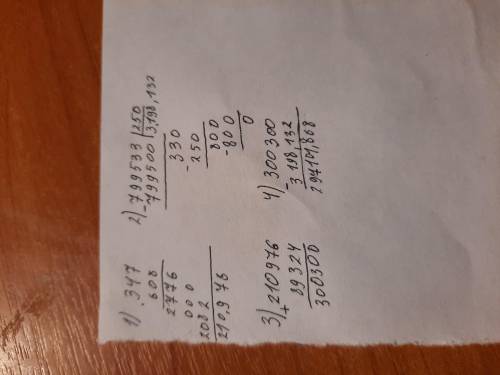 1) .347
608
2776
000
2082
210,976
2) -799533 |250
799500 |3,198,132
330
-250
800
-800
0
3) +210976
89324
300300
4) -300300
3 198,132